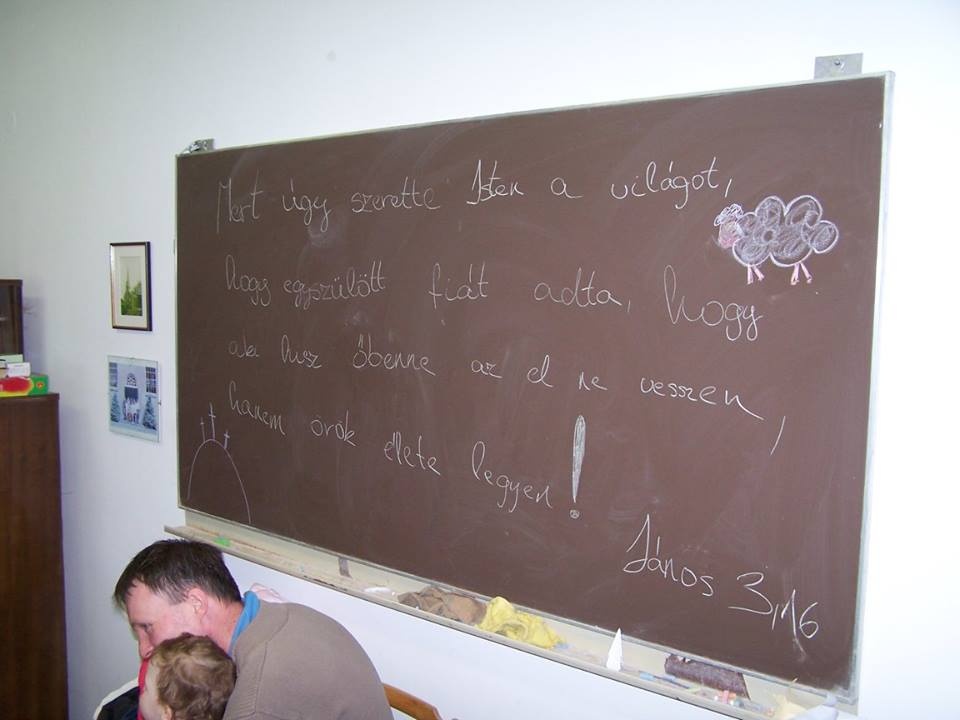 Mert úgy szerette Isten a világot,
hogy egyszülött fiát adta, hogy
aki hisz őbenne az el ne vesszen,
hanem örök élete legyen!
János 3,16